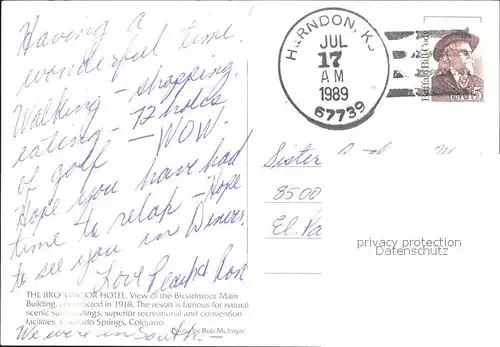 Having a
wonderful time.
Walking - shopping,
eating - 72 holes
of golf - WOW.
Hope you have had
time to relax - Hope
to see you in Denver.
Love Ron
THE BROADMOOR HOTEL, View of the Broadmoor Main
Building, constructed in 1918. The resort is famous for natural
scenic surroundings, superior recreational and convention
facilities. Colorado Springs, Colorado
Photo by Bob McIntyre
We were in South -
HERNDON, KS
JUL
17
AM
1989
67739
Buffalo Bill Cody
USA 15
Sister
8500
El Pa
privacy protection
Datenschutz